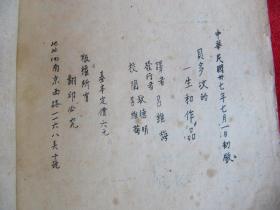 中華民國卅七年七月一日初版
貝多汶的
一生和作品
譯者
發行者
校閱
基本定價六元
版權所有
翻印必究
地址:南京西路一一六八弄十號